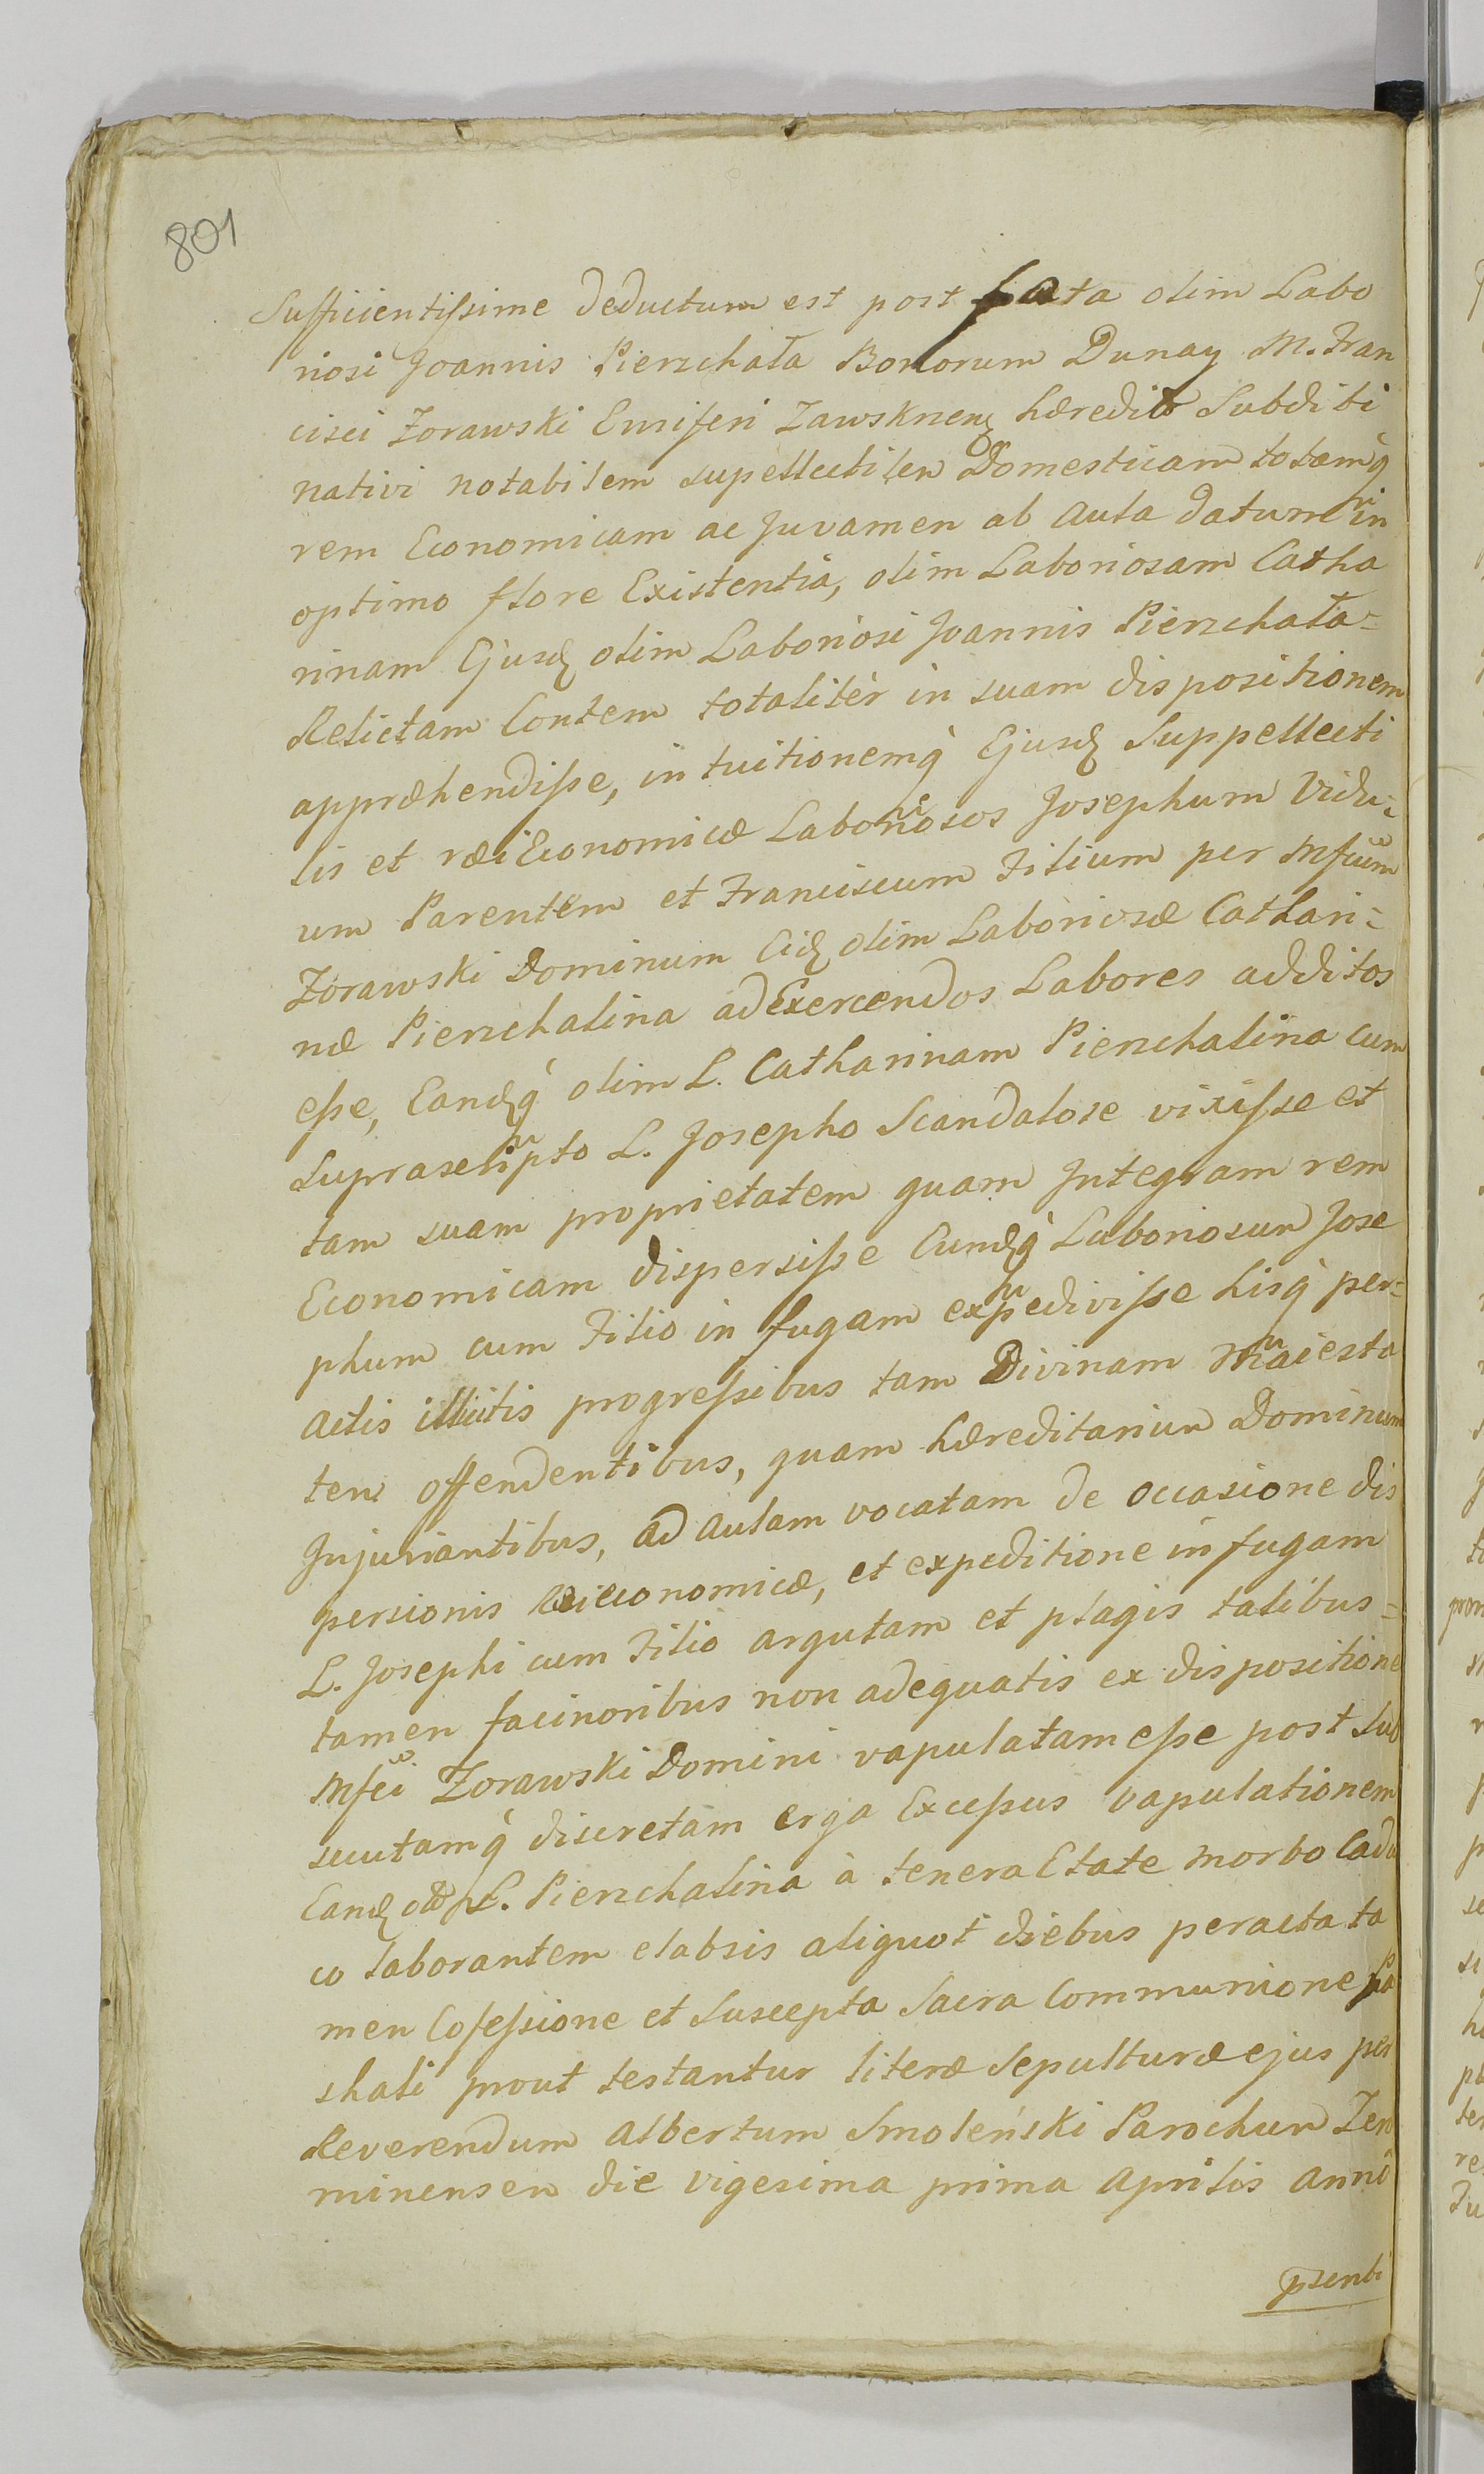 801
Sufficientissime deductum est post fata olim Labo
riosi Joannis Pierzchała Bonorum Dunay M. Fran
cisci Zorawski Ensiferi Zawsknen hæredit Subditi
nativi notabilem supellectilem Domesticam totamq̀
rem Economicam ac Juvamen ab Aula datum in
optimo flore Existentia, olim Laboriosam Catha
rinam Ejusd olim Laboriosi Joannis Pierzchała=
Relictam Contem totalitèr in suam dispositionem
appræhendisse, in tuitionemq̀ Ejusd Suppellecti
lis et ræi Economicæ Laboriosos Josephum Vidu=
um Parentem et Franciscum Filium per Mfcum
Zorawski Dominum Eid olim Laboriosæ Cathari=
næ Pierzchalina ad Exercendos Labores additos
esse, Eandq̀ olim L. Catharinam Pierzchalina cum
Suprascripto L. Josepho Scandalose vixisse et
tam suam proprietatem quam Integram rem
Economicam dispersisse Eundq̀ Laboriosum Jose
phum cum Filio in fugam expedivisse hisq̀ per=
actis illicitis progressibus tam Divinam Maiesta
tem offendentibus, quam hæreditarium Dominum
Injuriantibus, ad Aulam vocatam de occasione dis
persionis Rei economicæ, et expeditione in fugam
L. Josephi cum Filio argutam et plagis talibus=
tamen facinoribus non adequatis ex dispositione
Mfci Zorawski Domini vapulatam esse post Sub
secutamq̀ discretam erga Excessus vapulationem
Eand L. Pierzchalina à tenera Etate morbo Cadu
co laborantem elabsis aliquot diebus peracta ta
men Cofessione et Suscepta Sacra Communione Pa
shali prout testantur literæ Sepulturæ ejus per
Reverendum Albertum Smoleński Parochum Zero
minensem die vigesima prima Aprilis Anni
psenti